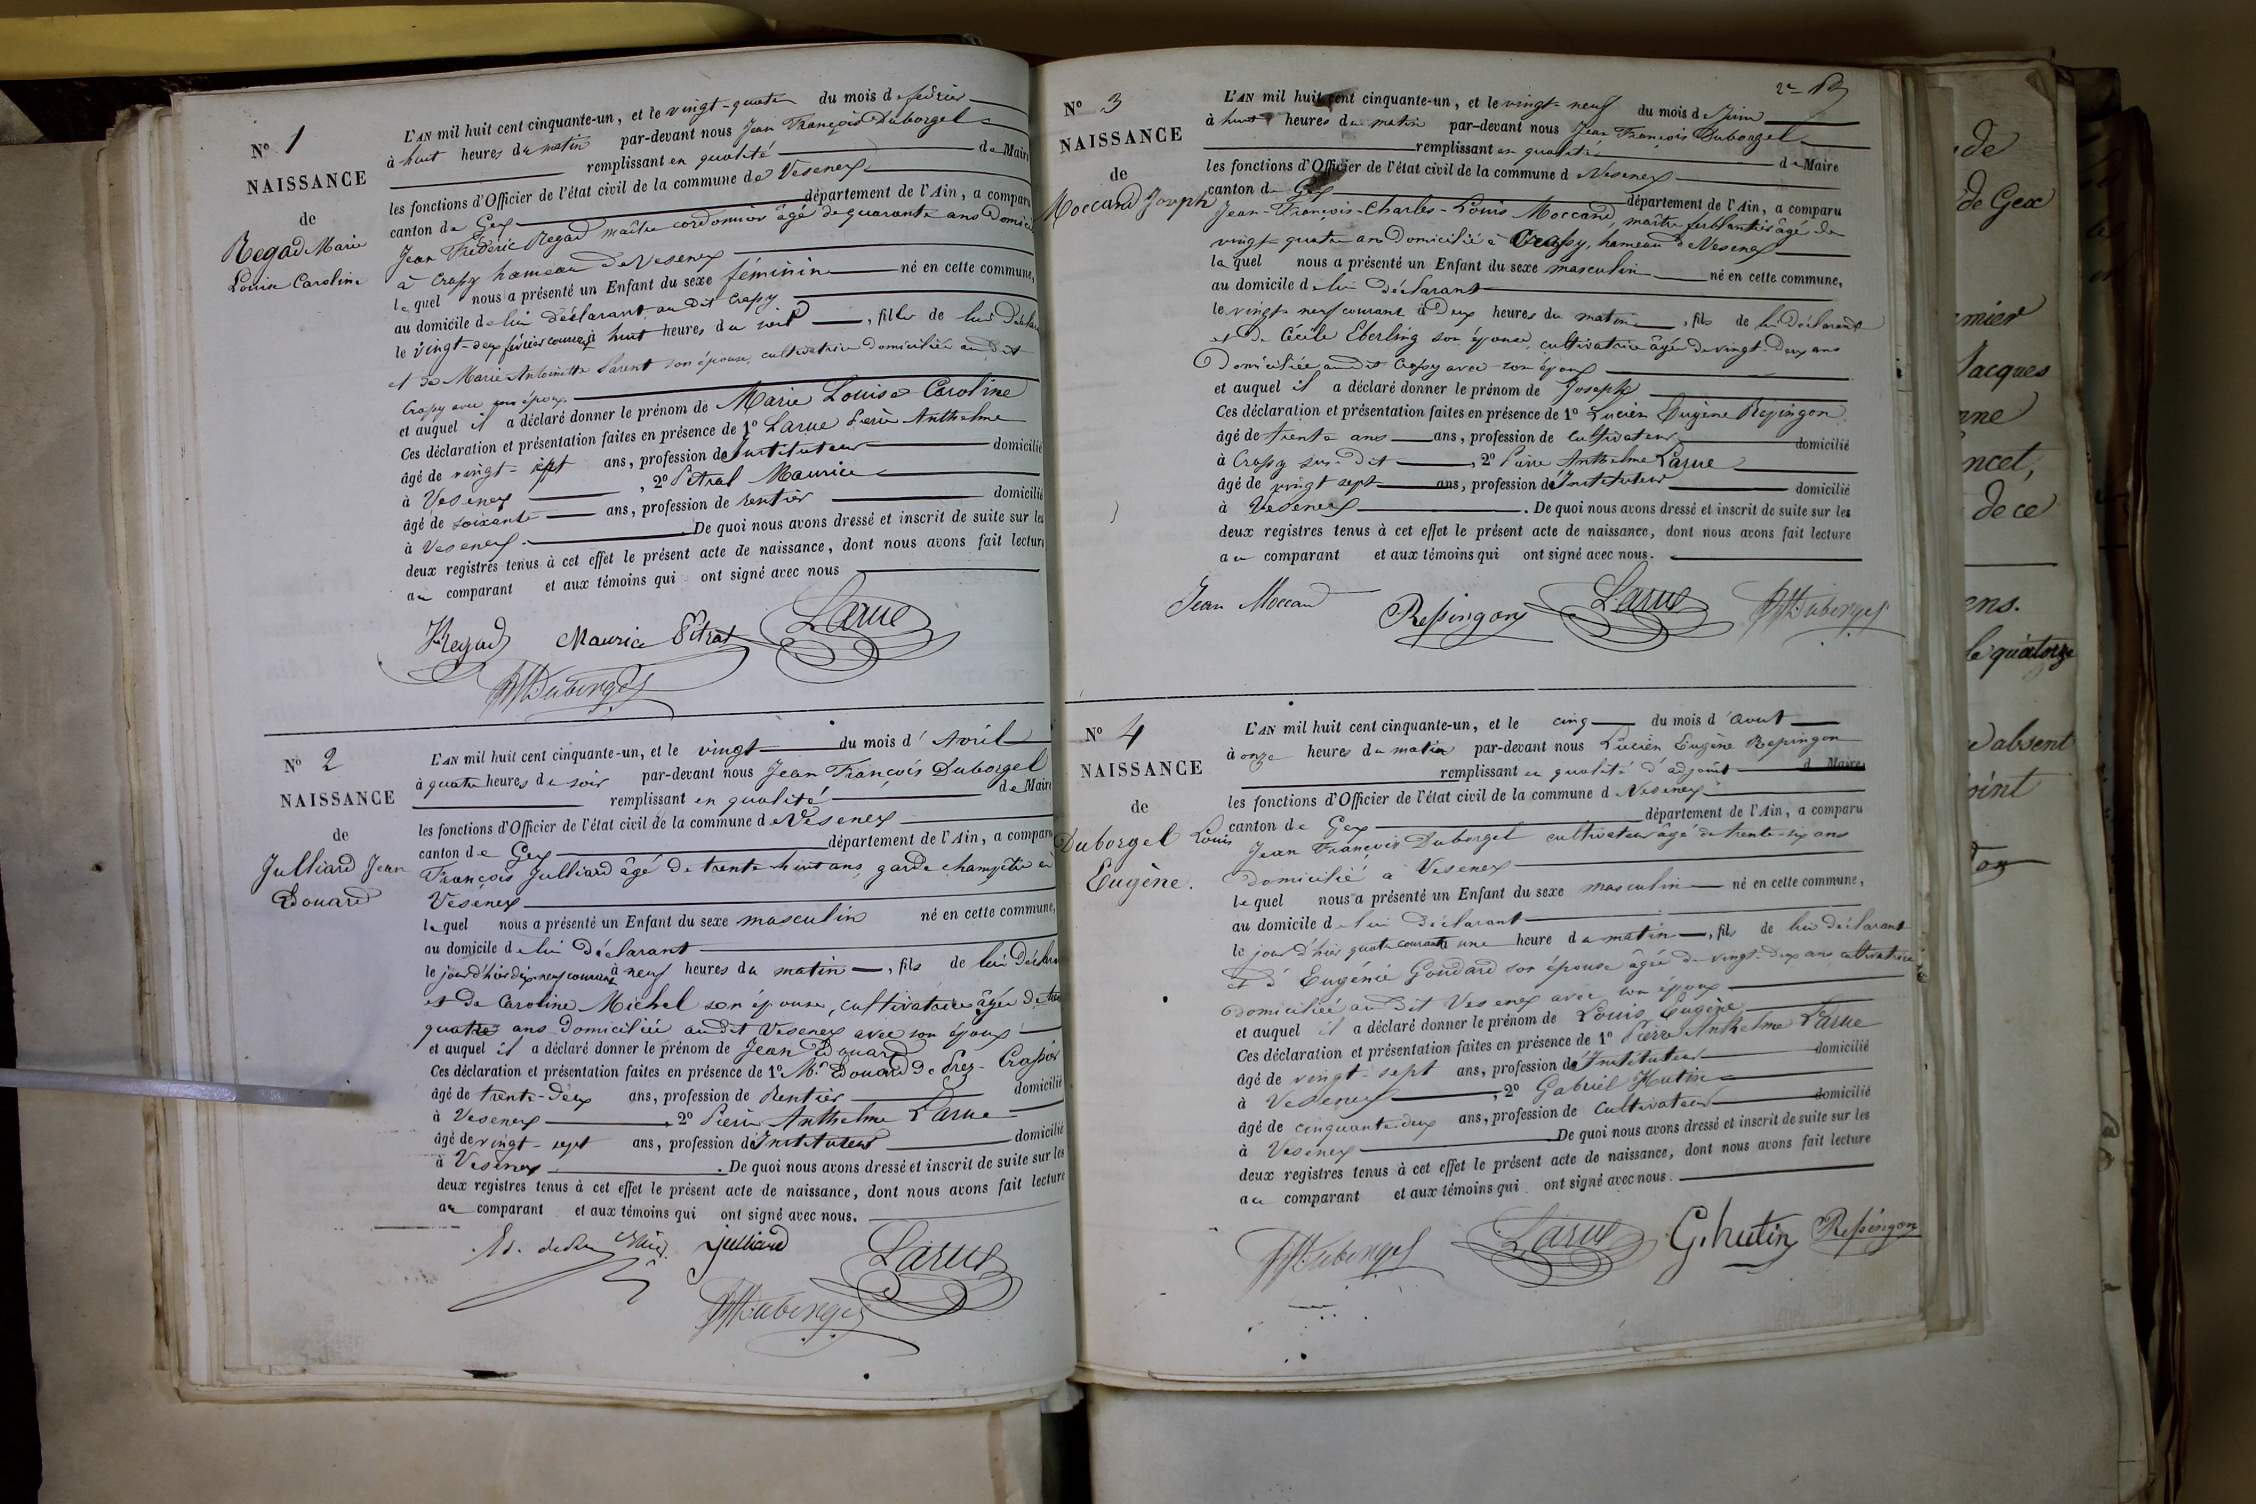 N° 1
NAISSANCE
de
Regad Marie
Louise Caroline
L'AN mil huit cent cinquante-un, et le vingt-quatre du mois de février
à huit heures du matin par-devant nous Jean François Duborgel
remplissant en qualité de Maire
les fonctions d'Officier de l'état civil de la commune de Vesenex
canton de Gex département de l'Ain, a comparu
Jean Frédéric Regad maître cordonnier âgé de quarante ans domicilié
à Crassy hameau de Vesenex
lequel nous a présenté un Enfant du sexe féminin né en cette commune,
au domicile de lui déclarant au dit Crassy
le vingt-deux février courant à huit heures du soir, fille de lui déclarant
et de Marie Antoinette Parent son épouse, cultivatrice domiciliée au dit
Crassy avec son époux
et auquel il a déclaré donner le prénom de Marie Louise Caroline
Ces déclaration et présentation faites en présence de 1° Larue Pierre Anthelme
âgé de vingt-sept ans, profession de Instituteur domicilié
à Vesenex, 2° Pétral Maurice
âgé de soixante ans, profession de rentier domicilié
à Vesenex. De quoi nous avons dressé et inscrit de suite sur les
deux registres tenus à cet effet le présent acte de naissance, dont nous avons fait lecture
au comparant et aux témoins qui ont signé avec nous
Regad Maurice Pétral Larue
Duborgel
N° 2
NAISSANCE
de
Julliard Jean
Edouard
L'AN mil huit cent cinquante-un, et le vingt du mois d'Avril
à quatre heures de soir par-devant nous Jean François Duborgel
remplissant en qualité de Maire
les fonctions d'Officier de l'état civil de la commune de Vesenex
canton de Gex département de l'Ain, a comparu
François Julliard âgé de trente huit ans, garde champêtre à
Vesenex
lequel nous a présenté un Enfant du sexe masculin né en cette commune,
au domicile de lui déclarant
le jour d'hier dix-neuf courant à neuf heures du matin, fils de lui déclarant
et de Caroline Michel son épouse, cultivatrice âgée de trente
quatre ans domiciliée audit Vesenex avec son époux
et auquel il a déclaré donner le prénom de Jean Edouard
Ces déclaration et présentation faites en présence de 1° Mr Edouard de Prez-Crassier
âgé de trente-deux ans, profession de Rentier domicilié
à Vesenex, 2° Pierre Anthelme Larue
âgé de vingt-sept ans, profession d'Instituteur domicilié
à Vesenex. De quoi nous avons dressé et inscrit de suite sur les
deux registres tenus à cet effet le présent acte de naissance, dont nous avons fait lecture
au comparant et aux témoins qui ont signé avec nous.
Julliard Larue
Duborgel
2e
N° 3
NAISSANCE
de
Moccand Joseph
L'AN mil huit cent cinquante-un, et le vingt-neuf du mois de Juin
à huit heures du matin par-devant nous Jean François Duborgel
remplissant en qualité de Maire
les fonctions d'Officier de l'état civil de la commune d Vesenex
canton de Gex département de l'Ain, a comparu
Jean-François-Charles-Louis Moccand, maître ferblantier âgé de
vingt-quatre ans domicilié à Crassy, hameau de Vesenex
laquel nous a présenté un Enfant du sexe masculin né en cette commune,
au domicile de lui déclarant
le vingt-neuf courant à deux heures du matin, fils de lui déclarant
et de Cécile Eberling son épouse, cultivatrice âgée de vingt-deux ans
domiciliée audit Crassy avec son époux
et auquel il a déclaré donner le prénom de Joseph
Ces déclaration et présentation faites en présence de 1° Lucien Eugène Repingon
âgé de trente ans ans, profession de cultivateur domicilié
à Crassy sus-dit, 2° Pierre Anthelme Larue
âgé de vingt sept ans, profession de Instituteur domicilié
à Vesenex. De quoi nous avons dressé et inscrit de suite sur les
deux registres tenus à cet effet le présent acte de naissance, dont nous avons fait lecture
au comparant et aux témoins qui ont signé avec nous.
Jean Moccand Repingon Larue Duborgel
N° 4
NAISSANCE
de
Duborgel Louis
Eugène.
L'AN mil huit cent cinquante-un, et le cinq du mois d'Aout
à onze heures du matin par-devant nous Lucien Eugène Repingon
remplissant en qualité d'adjoint d Maire
les fonctions d'Officier de l'état civil de la commune d Vesenex
canton de Gex département de l'Ain, a comparu
Jean François Duborgel cultivateur âgé de trente-six ans
domicilié à Vesenex
lequel nous a présenté un Enfant du sexe masculin né en cette commune,
au domicile de lui déclarant
le jour d'hier quatre courant à une heure du matin, fils de lui déclarant
et d'Eugénie Goudard son épouse âgée de vingt-deux ans cultivatrice
domiciliée audit Vesenex avec son époux
et auquel il a déclaré donner le prénom de Louis Eugène
Ces déclaration et présentation faites en présence de 1° Pierre Anthelme Larue
âgé de vingt-sept ans, profession d'Instituteur domicilié
à Vesenex, 2° Gabriel Hutin
âgé de cinquante-deux ans, profession de Cultivateur domicilié
à Vesenex De quoi nous avons dressé et inscrit de suite sur les
deux registres tenus à cet effet le présent acte de naissance, dont nous avons fait lecture
au comparant et aux témoins qui ont signé avec nous.
Duborgel Larue G. hutin Repingon
de
de Gex
Jacques
de ce
le quatorze
absent